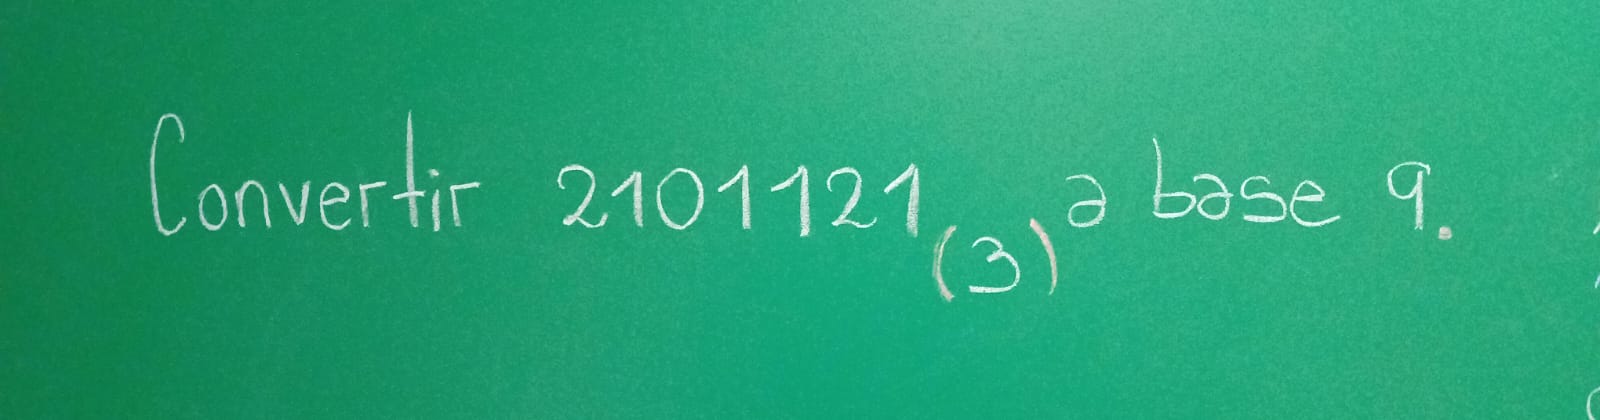 Convertir 2101121(3) a base 9.